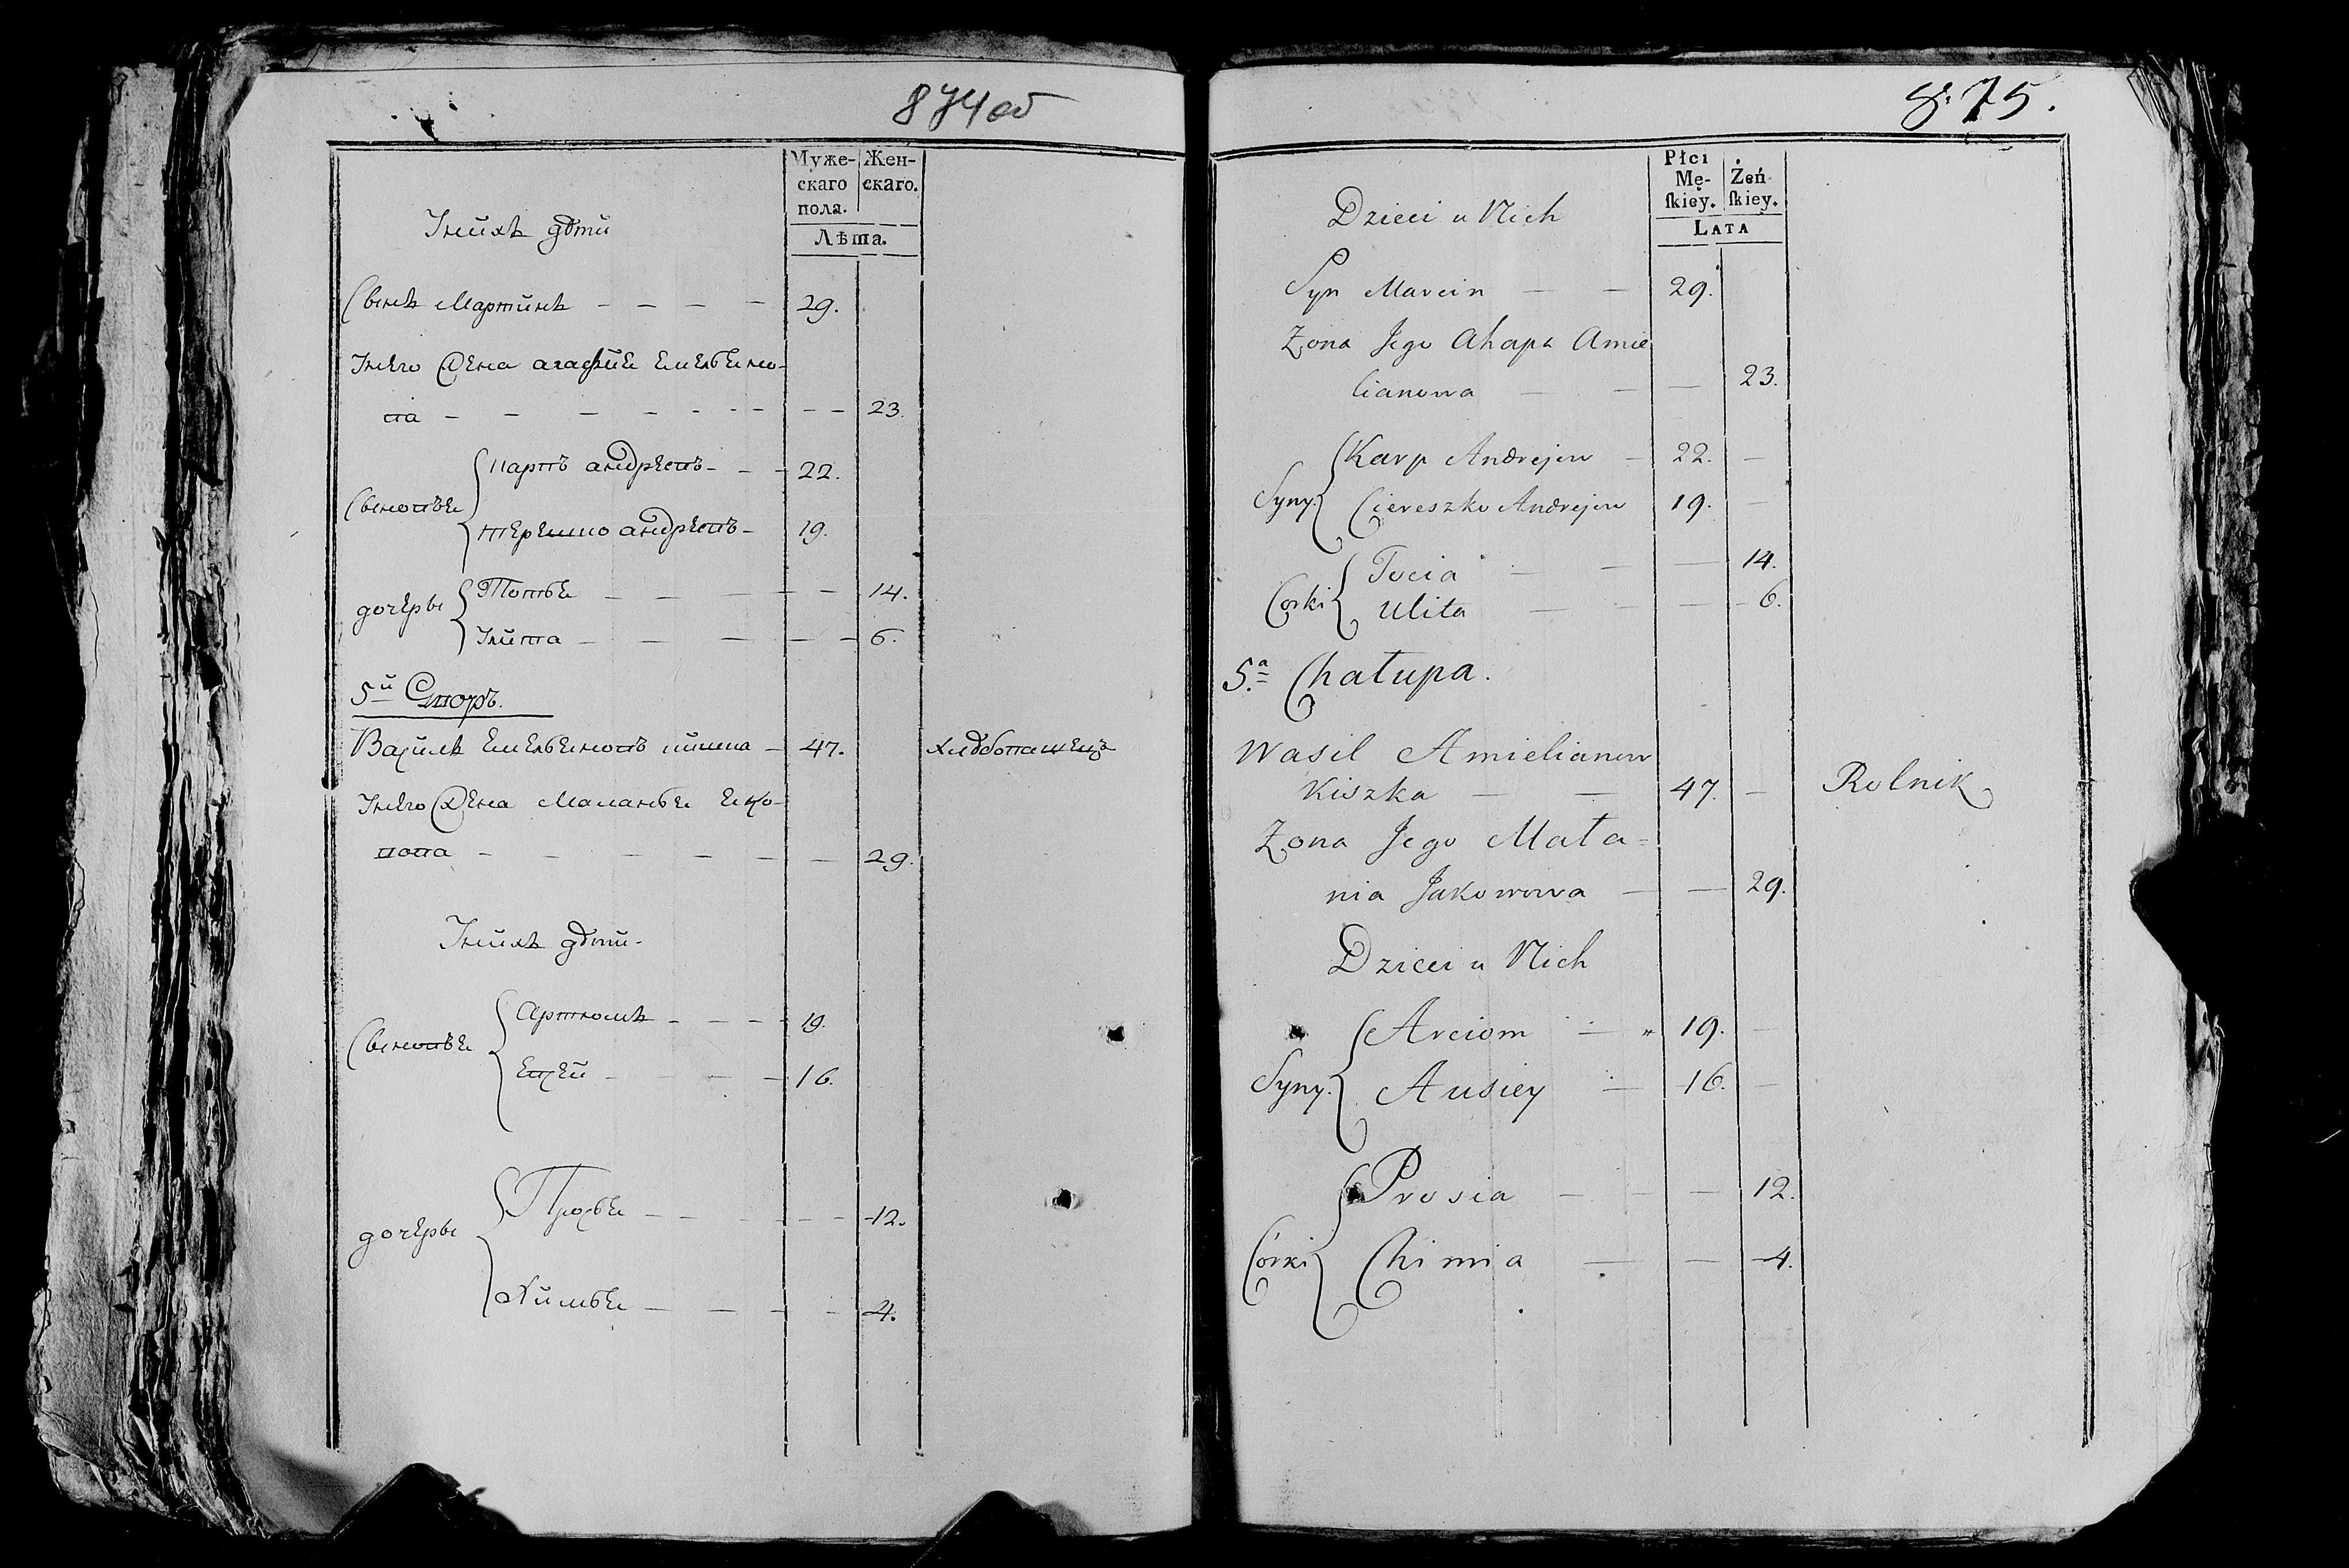 874 об
Муже-
скаго
пола.
Жен-
скаго.
Лѣта.
Унихъ дѣти
Сынъ Мартинъ — — — — 29.
Унего жена агафия емельяно-
ва — — — — — — 23.
Сыновья
карпъ андреевъ — — 22.
терешко андреевъ — 19.
дочеры
Тотья — — — — — 14.
Улита — — — — — 6.
5й Дворъ.
Василь емельяновъ кишка — 47. хлѣбопашецъ
Унего жена Маланья яко-
вова — — — — — — 29.
Унихъ дѣти.
Сыновья
Артіомъ — — — 19.
Евсей — — — — 16.
дочеры
Просья — — — — — 12.
Химья — — — — 4.
875.
Płci
Mę-
ſkiey.
Żeń
ſkiey.
LATA
Dzieci u Nich
Syn Marcin — — 29.
Zona Jego Ahapa Amie
lianowa — — — 23.
Syny.
Karp Andrejew — 22. —
Ciereszko Andrejew 19. —
Corki
Tocia — — — 14.
Ulita — — — 6.
5.a Chałupa.
Wasil Amielianow
Kiszka — — 47. — Rolnik
Zona Jego Mała=
nia Jakowowa — — 29.
Dzieci u Nich
Syny.
Arciom — " 19. —
Ausiey — 16. —
Córki
Prosia — — — 12.
Chimia — — 4.